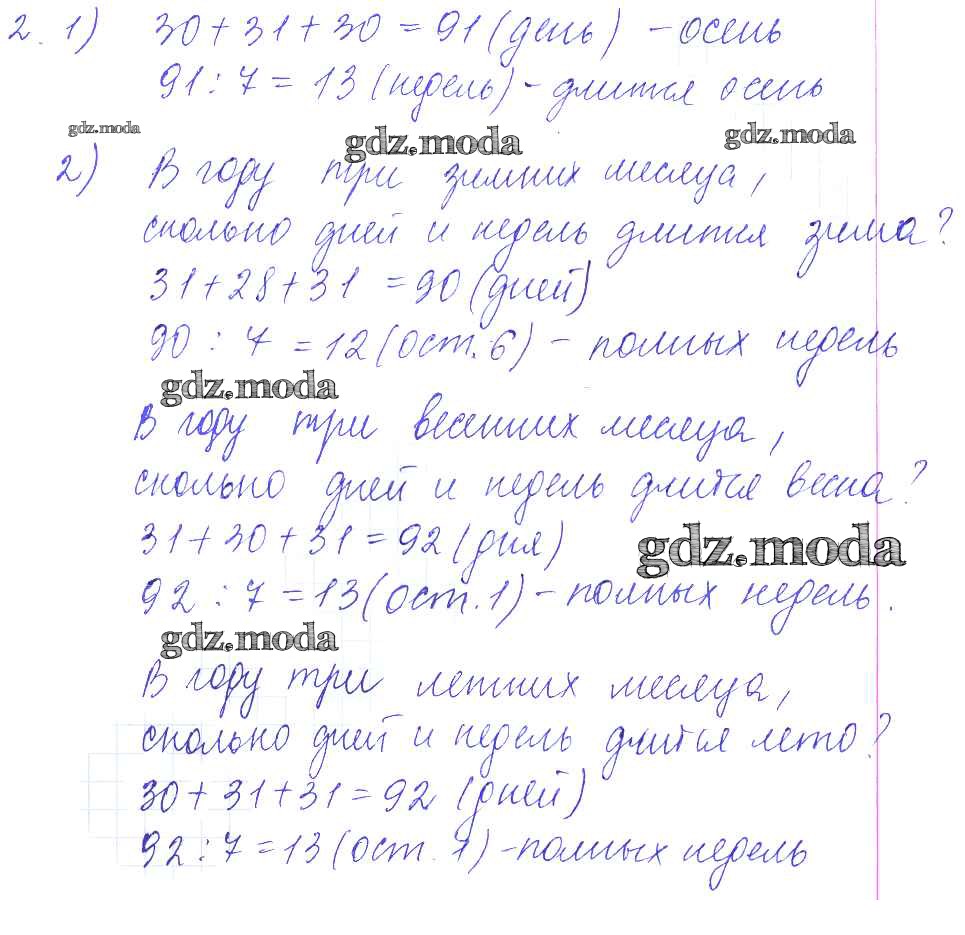 2. 1) 30 + 31 + 30 = 91 (день) - осень
91 : 7 = 13 (недель) - длится осень
gdz.moda gdz.moda gdz.moda
2) В году три зимних месяца,
сколько дней и недель длится зима?
31 + 28 + 31 = 90 (дней)
90 : 7 = 12 (ост. 6) - полных недель
gdz.moda
В году три весенних месяца,
сколько дней и недель длится весна?
31 + 30 + 31 = 92 (дня)
gdz.moda
92 : 7 = 13 (ост. 1) - полных недель.
gdz.moda
В году три летних месяца,
сколько дней и недель длится лето?
30 + 31 + 31 = 92 (дней)
92 : 7 = 13 (ост. 1) - полных недель